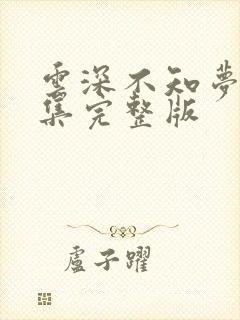 雲深不知夢
集完整版
盧子躍